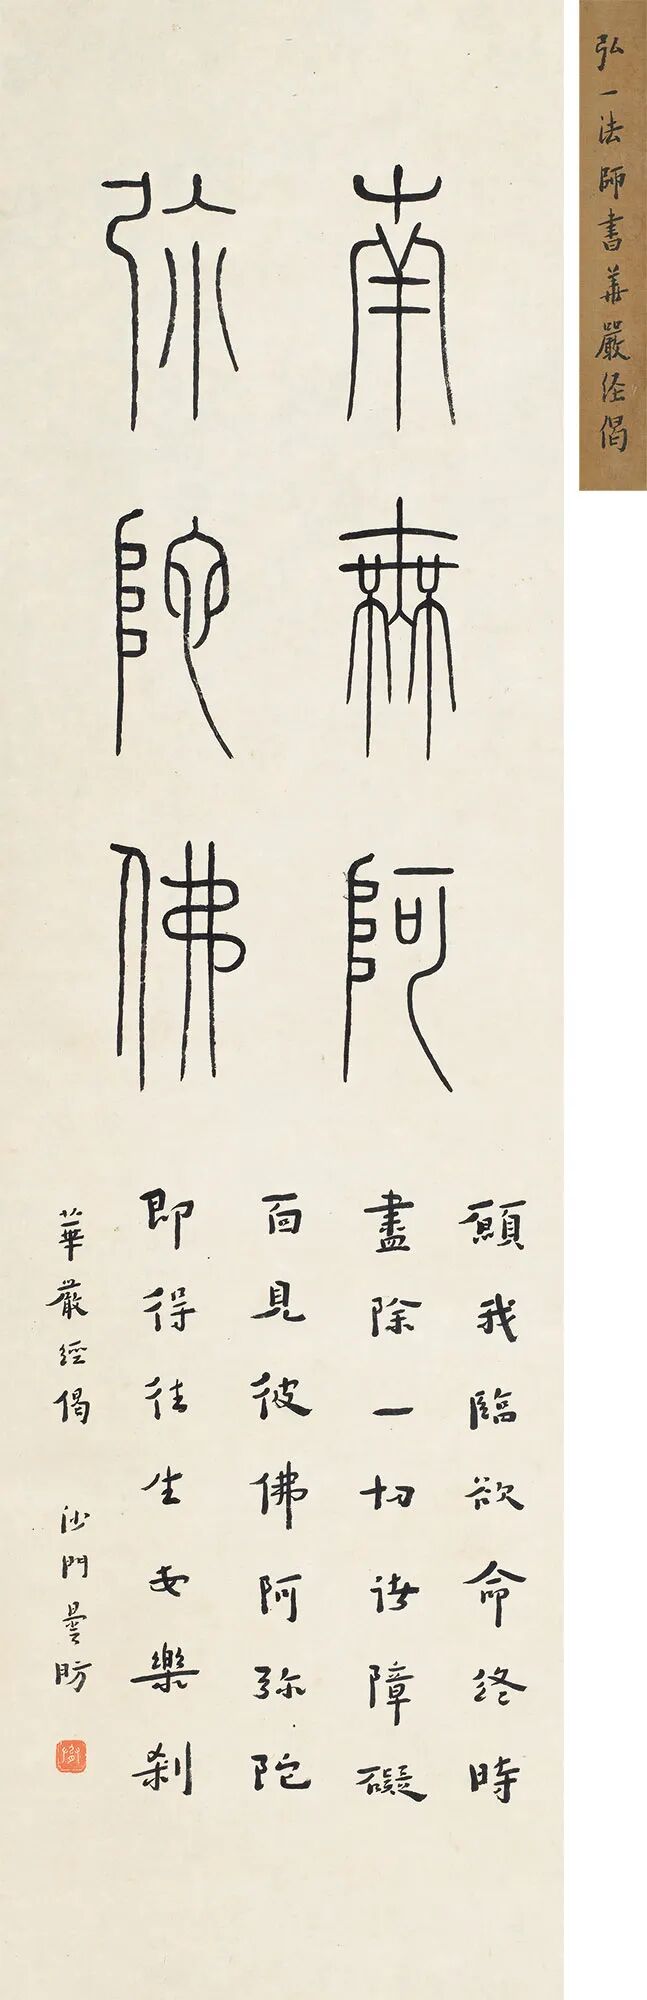 弘一法師書華嚴經偈
南無阿
弥陀佛
願我臨欲命終時
盡除一切諸障礙
面見彼佛阿弥陀
即得往生安樂刹
華嚴經偈 沙門曇昉